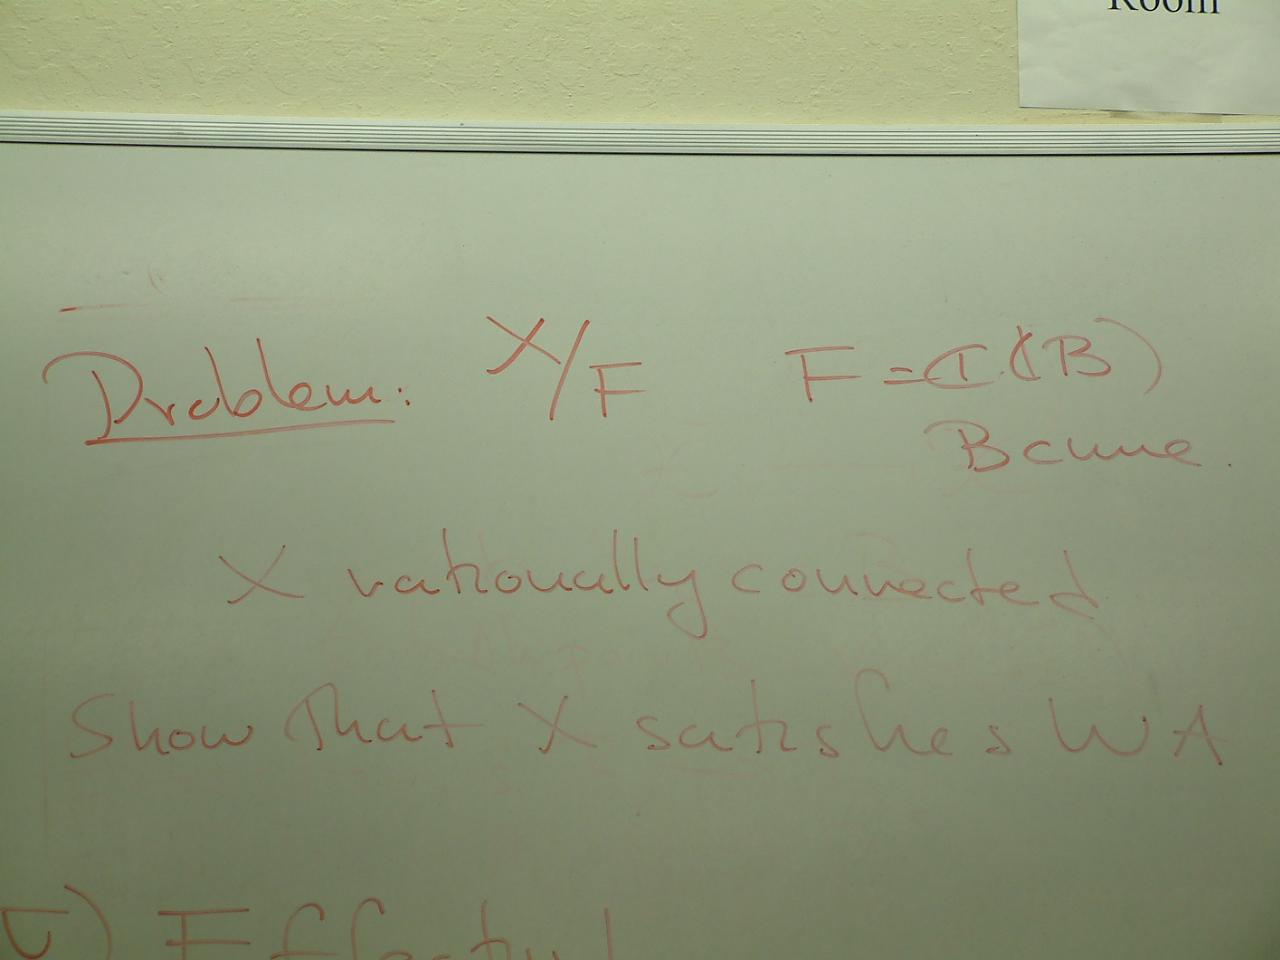 Room
Problem: X/F F = ℂ(B)
B curve.
X rationally connected
Show that X satisfies WA